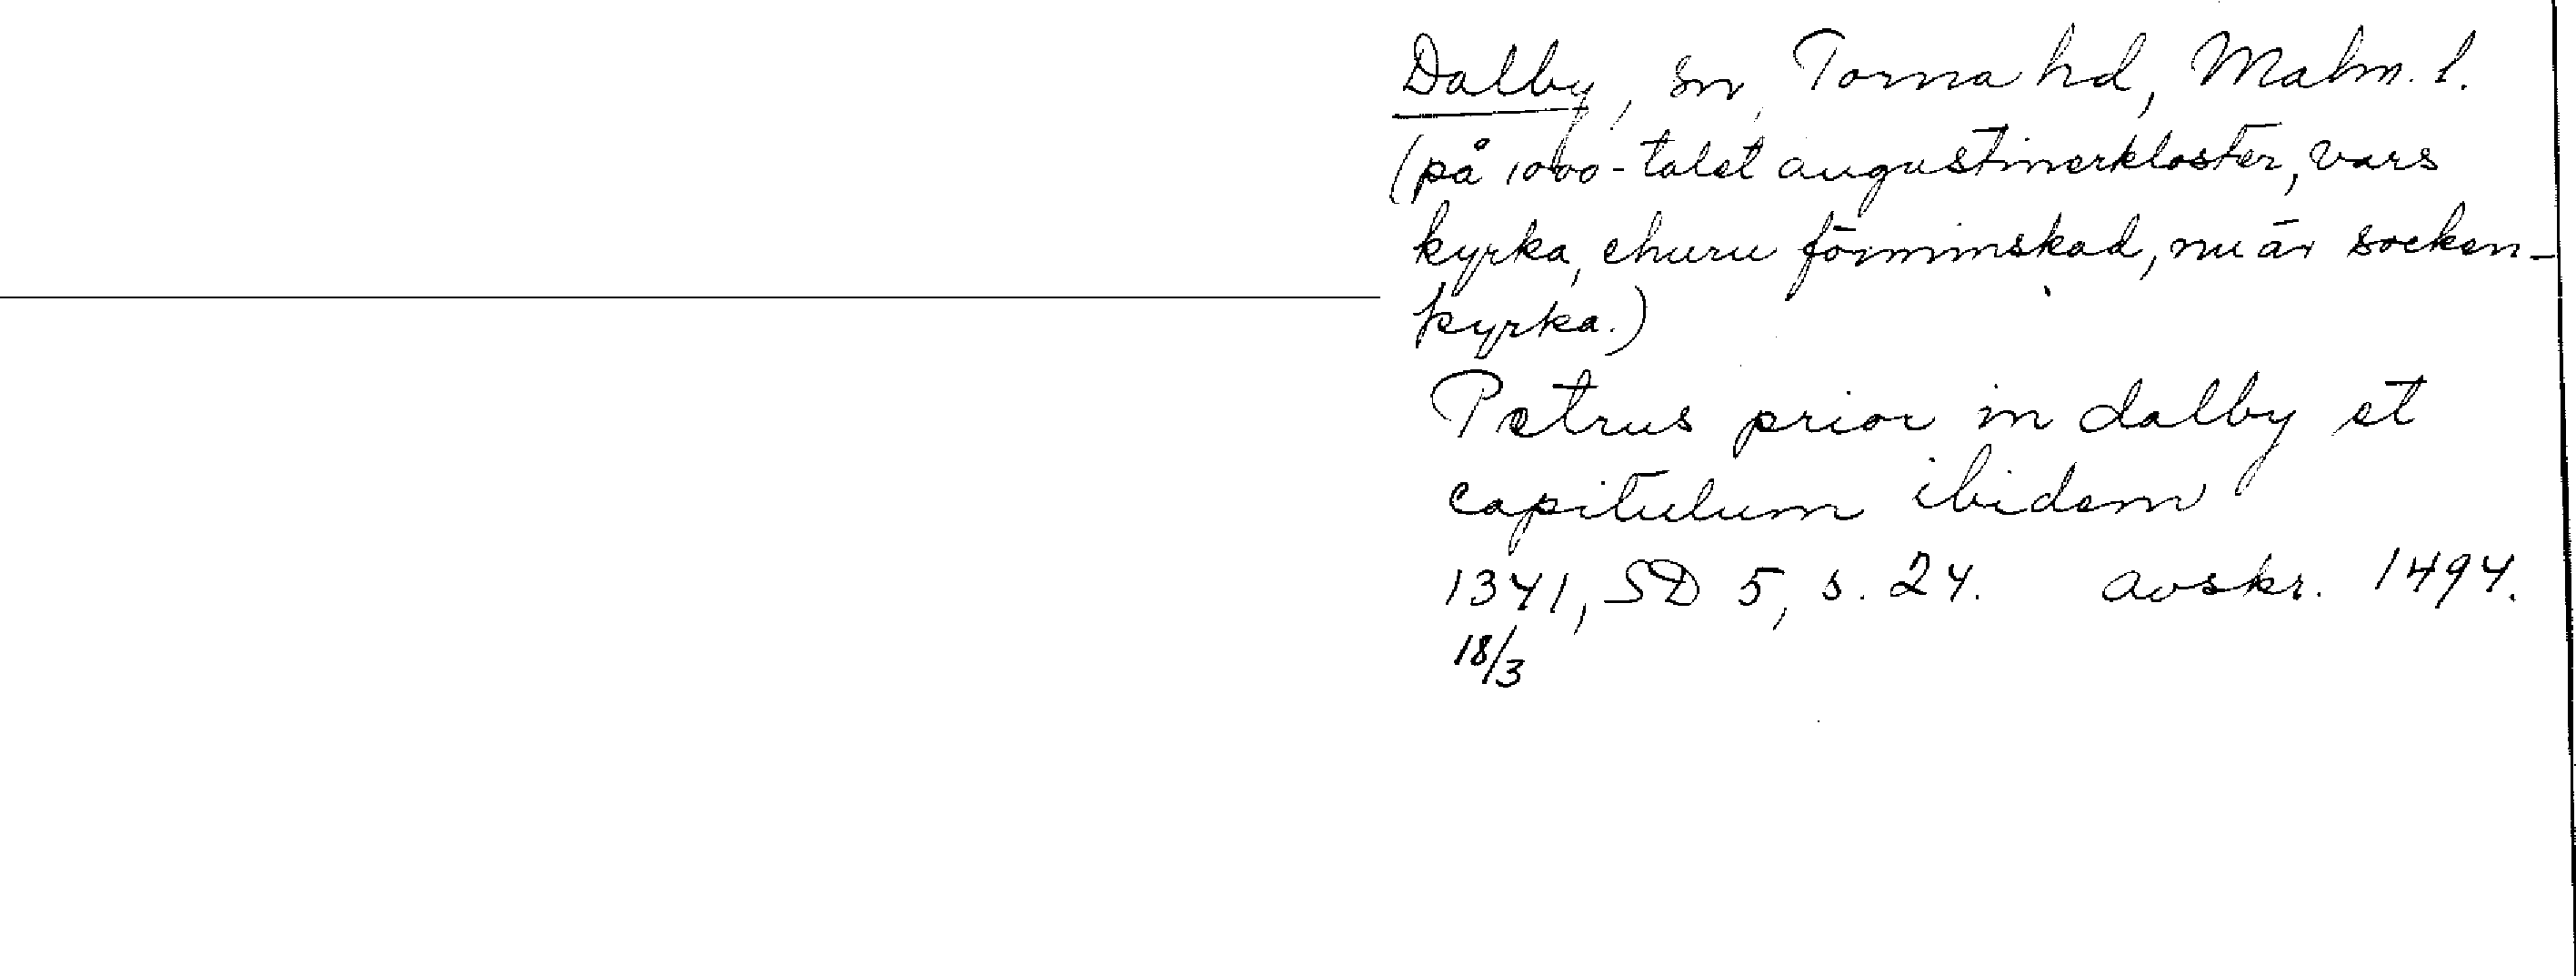 Dalby, sn, Torna hd, Malm. l.
(på 1000-talet augustinerkloster, vars
kyrka, ehuru förminskad, nu är socken-
kyrka.)
Petrus prior in dalby et
capitulum ibidem
1341, SD 5, s. 24. avskr. 1494.
18/3